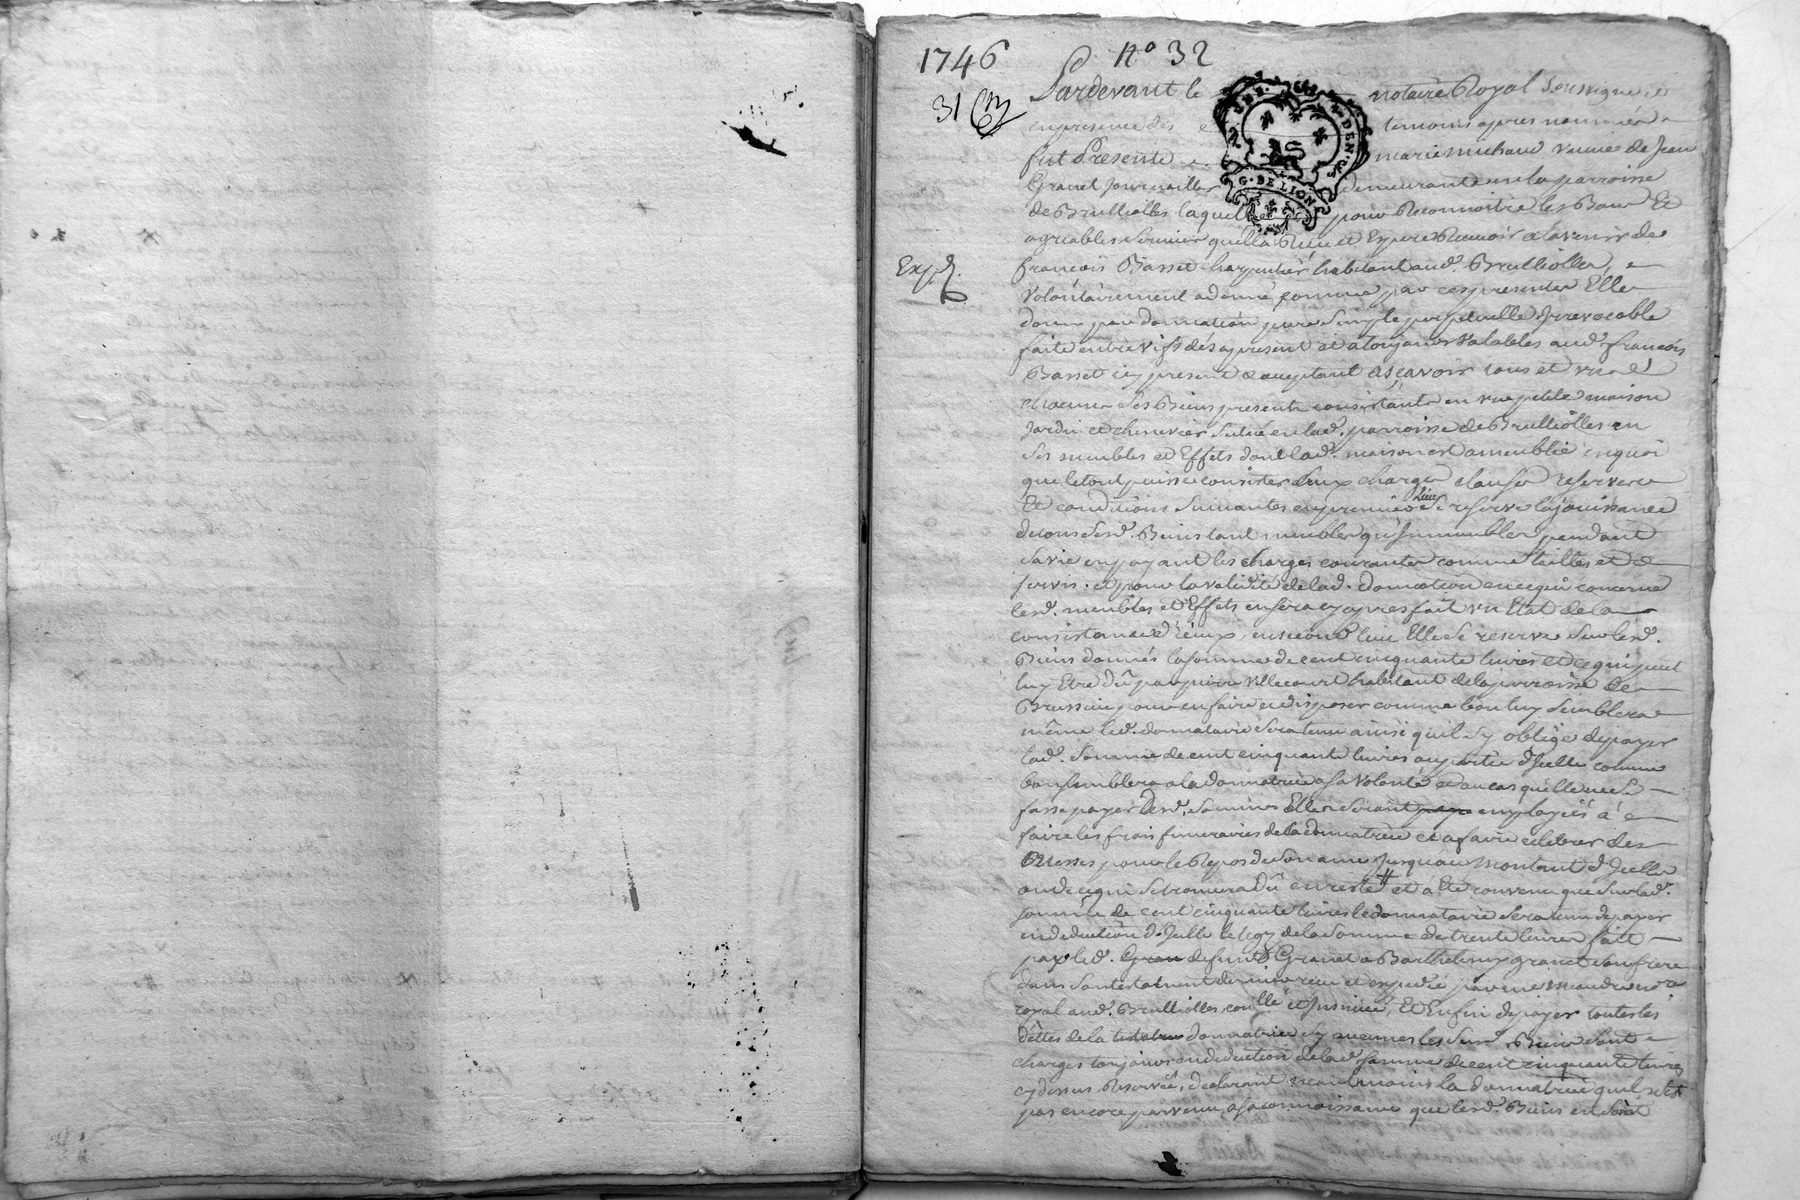 1746
n° 32
31
Pardevant le notaire Royal soussigné et
en presence des temoins apres nommés
fut Presente marie michaud veuve de Jean
Granet Journaillier demeurante en la parroisse
de Brulliolles laquelle pour Reconnoitre les Bons Et
agreables services quella Reçu et Espere Recevoir a lavenir de
Exp.
françois Basset charpentier habitant aud. Brulliolles,
volontairement a donné comme par ces presentes Elle
donne par donnation pure simple perpetuelle Irrevocable
faite entre vifs dés apresent et a toujours valables aud. françois
Basset icy present & aceptant asçavoir tous et un
chacuns ses Biens presents consistants en une petite maison
Jardin et chenevier situé en lad. parroisse de Brulliolles en
ses meubles et Effets dont lad. maison est ameublée en quoi
que le tout puisse consister Aux charges clauses reserves
Et conditions suivantes en premier lieu se reserve la jouissance
de tous sesd. Biens tant meubles qu'Immeubles pendant
sa vie en payant les charges courantes comme tailles et
servis. et pour la validité de lad. donnation en ce qui concerne
lesd. meubles et Effets en sera cy apres fait un Etat de la
consistance d'iceux, en second lieu Elle se reserve sur lesd.
Biens donnés la somme de cent cinquante livres et ce qui peut
luy Etre dû par pierre Villecourt habitant de la parroisse de
Brussieu pour en faire et disposer comme bon luy semblera
même led. donnataire sera tenu ainsi quil s'y oblige de payer
lad. somme de cent cinquante livres ou partie d'Icelle comme
bon semblera a la donnatrice a sa volonté et au cas quelle ne se
fasse payer lesd. sommes Elles seront employées à
faire les frais funeraires de la donnatrice et a faire celebrer des
Messes pour le Repos de son ame Jusquau montant d'Icelle
ou de ce qui se trouvera Dû en reste # et a Eté convenu que sur lad.
somme de cent cinquante livres le donnataire sera tenu de payer
en deduction d'Icelle le legs de la somme de trente livres fait
par led. defunt Granet a Barthelemy granet son frere
dans son testament dernier reçu et expedié par me
royal aud. Brulliolles, controllé et Insinué, Et Enfin de payer toutes les
dêttes de la donnatrice sy aucunes les susd. Biens sont
chargés toujours en deduction de lad. somme de cent cinquante livres
cy dessus Reservée, declarant neantmoins la donnatrice quil n'est
pas encore parvenu a sa connoissance que lesd. Biens en soient